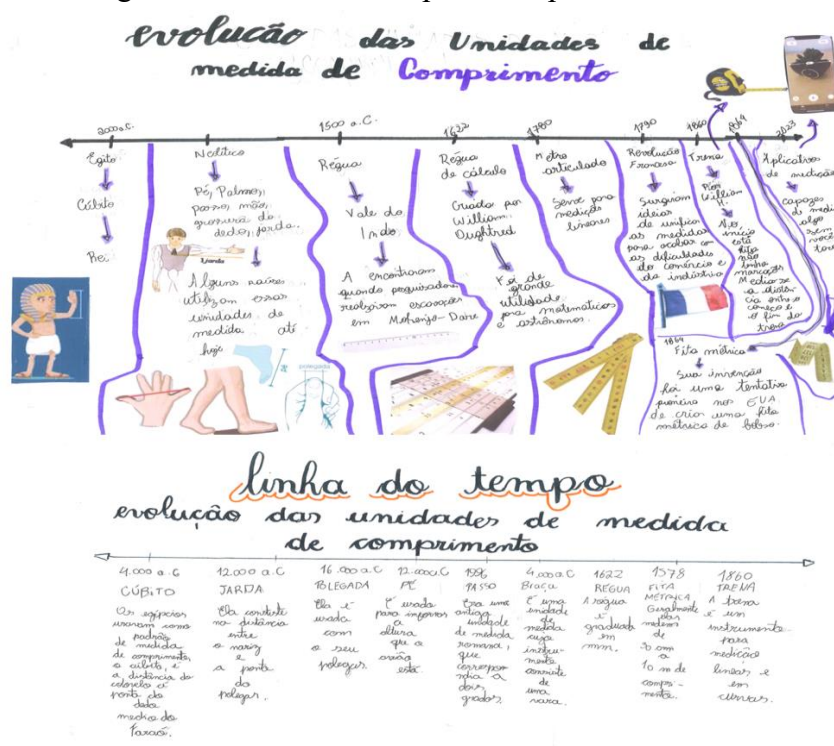 evolução das Unidades de
medida de Comprimento
2000 a.C.
1500 a.C.
1622
1780
1790
1860
1869
2023
Egito
Cúbito
Rei
Neolítico
Pé, Palmo,
passo, mão,
grossura do
dedo, jarda.
Jarda
Alguns países
utilizam essas
unidades de
medida até
hoje
polegada
Régua
Vale do
Indo
A encontraram
quando pesquisadores
realizavam escavações
em Mohenjo-Daro
Régua
de cálculo
Criado por
William
Oughtred
Foi de
grande
utilidade
para matemáticos
e astrônomos.
Metro
articulado
Serve para
medições
lineares
Revolução
Francesa
Surgiram
ideias
de unificar
as medidas
para acabar com
as dificuldades
do comércio e
da indústria
Trena
William
H.
No
início
esta
fita
não
tinha
marcações
Media-se
a distân
cia entre o
começo e
o fim da
trena
Aplicativos
de medição
capazes
de medir
algo
sem
você
1869
Fita métrica
Sua invenção
foi uma tentativa
pioneira nos EUA
de criar uma fita
métrica de bolso.
linha do tempo
evolução das unidades de medida
de comprimento
4.000 a.C
CÚBITO
Os egípcios
usavam como
padrão
de medida
de comprimento,
o cúbito, é
a distância do
cotovelo à
ponta do
dedo
medio do
Faraó.
12000 a.C
JARDA
Ela consiste
na distância
entre
o nariz
e
a ponta
do
polegar.
16.000 a.C
POLEGADA
Ela é
usada
com
o seu
polegar.
12.000 a.C
PÉ
É usada
para informar
a
altura
que o
avião
está
PASSO
Era uma
antiga
unidade
de medida
romana,
que
correspon
dia a
dois
graus.
4.000 a.C
Braça
É uma
unidade
de
medida
cujo
instru-
mento
consiste
de
uma
vara.
1622
RÉGUA
A régua
é
graduada
em
mm.
1578
FITA
MÉTRICA
Geralmente
elas
medem
de
30 cm
a
10 m de
compri-
mento.
1860
TRENA
A trena
é um
instrumento
para
medição
linear e
em
curvas.